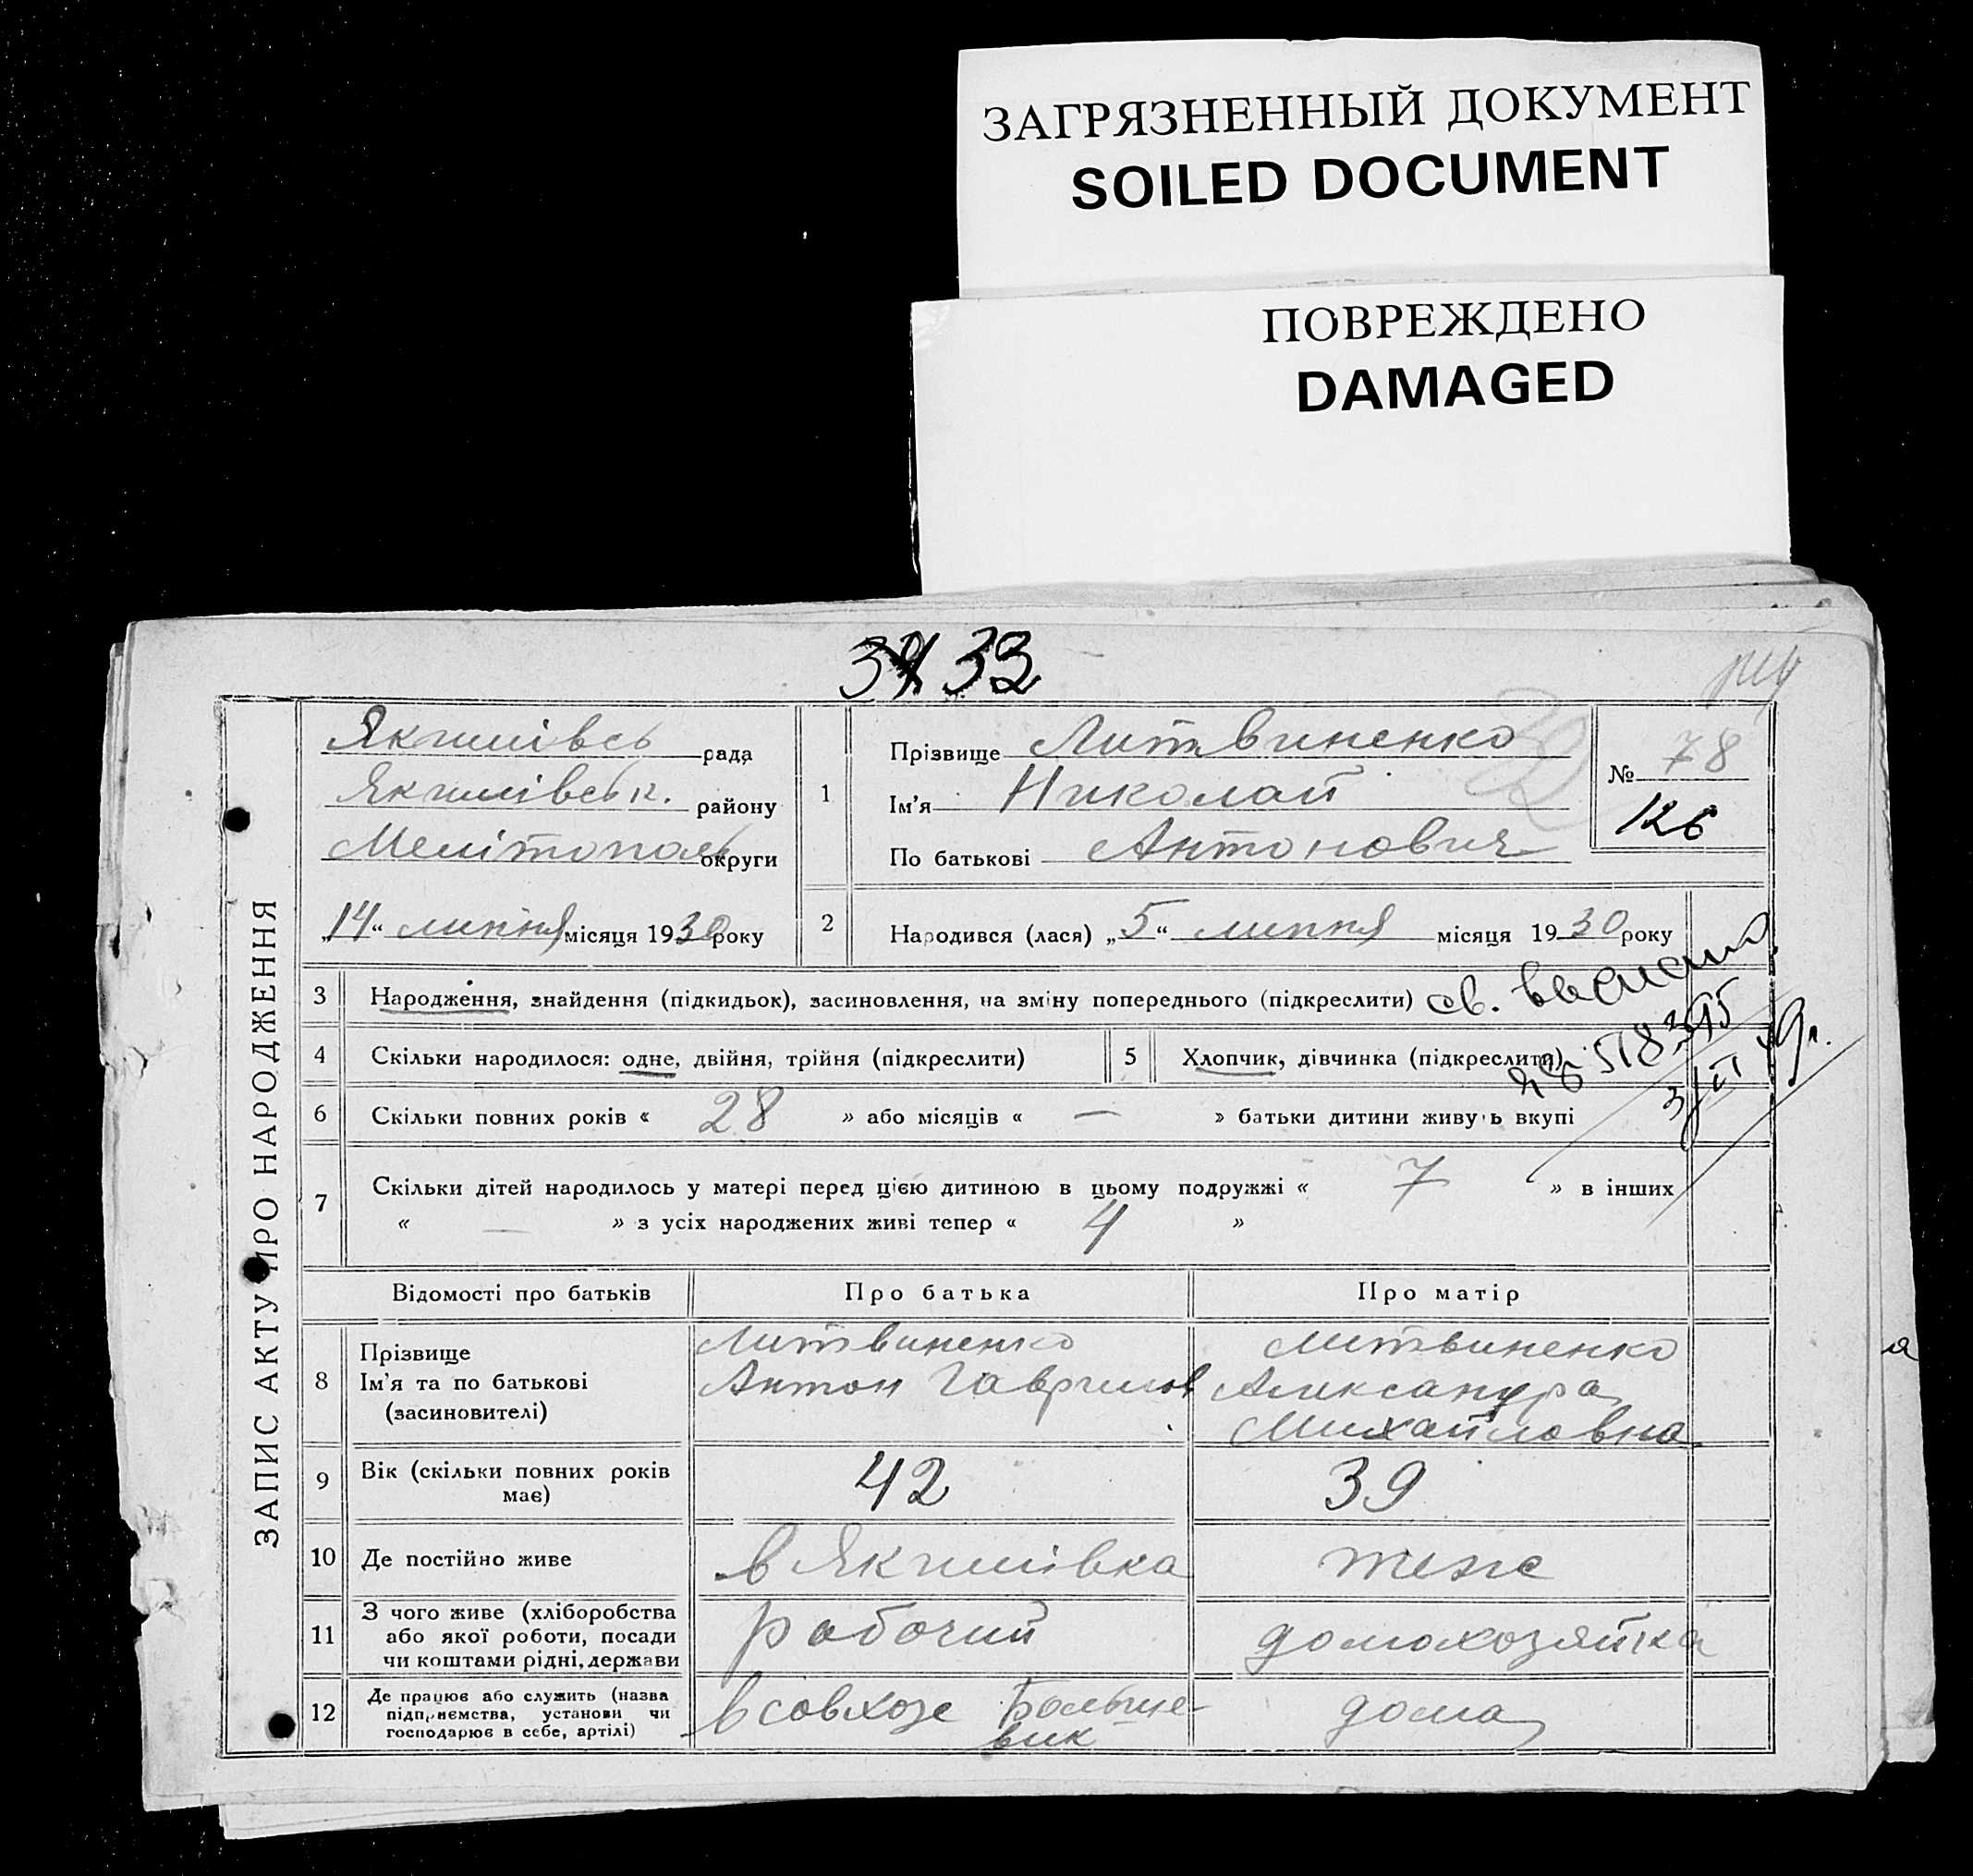 ЗАГРЯЗНЕННЫЙ ДОКУМЕНТ
SOILED DOCUMENT
ПОВРЕЖДЕНО
DAMAGED
33
ЗАПИС АКТУ ПРО НАРОДЖЕННЯ
Якимівсь рада
Якимівськ. району
Мелітополь округи
„14“ липня місяця 1930 року
1
Прізвище Литвиненко
Ім’я Николай
По батькові Антонович
№ 78
126
2 Народився (лася) „5“ липня місяця 1930 року
3 Народження, знайдення (підкидьок), засиновлення, на зміну попереднього (підкреслити) св.
4 Скільки народилося: одне, двійня, трійня (підкреслити) 5 Хлопчик, дівчинка (підкреслити)
6 Скільки повних років « 28 » або місяців « — » батьки дитини живуть вкупі
7 Скільки дітей народилось у матері перед цією дитиною в цьому подружжі « 7 » в інших
« — » з усіх народжених живі тепер « 4 »
Відомості про батьків Про батька Про матір
8 Прізвище
Ім’я та по батькові
(засиновителі)
Литвиненко
Антон Гаврилов
Литвиненко
Александра
Михайловна
9 Вік (скільки повних років
має)
42 39
10 Де постійно живе в Якимівка тоже
11 З чого живе (хліборобства
або якої роботи, посади
чи коштами рідні, держави
рабочий домохозяйка
12 Де працює або служить (назва
підприємства, установи чи
господарює в себе, артілі)
в совхозе Больше-
вик
дома